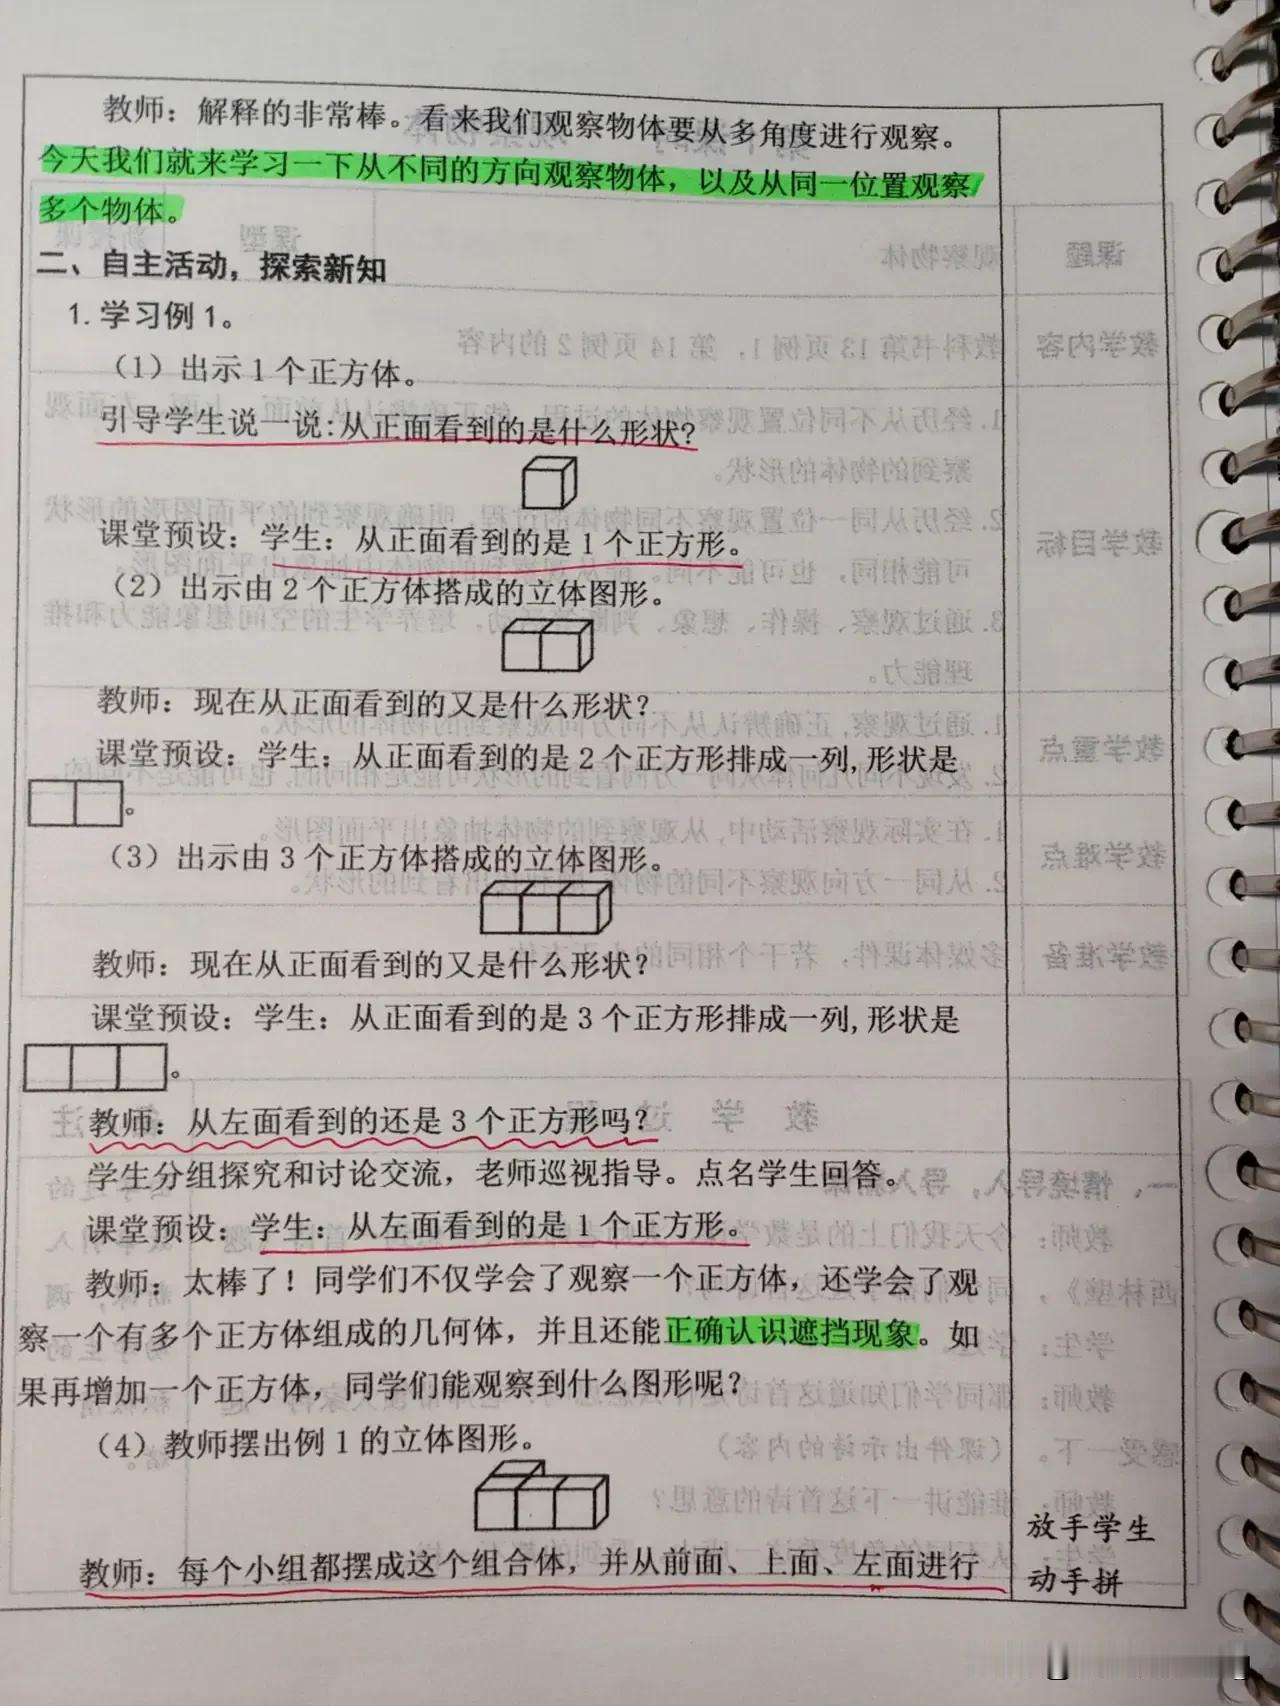 教师：解释的非常棒。看来我们观察物体要从多角度进行观察。
今天我们就来学习一下从不同的方向观察物体，以及从同一位置观察
多个物体。
二、自主活动，探索新知
1. 学习例 1。
（1）出示 1 个正方体。
引导学生说一说：从正面看到的是什么形状？
课堂预设：学生：从正面看到的是 1 个正方形。
（2）出示由 2 个正方体搭成的立体图形。
教师：现在从正面看到的又是什么形状？
课堂预设：学生：从正面看到的是 2 个正方形排成一列，形状是
。
（3）出示由 3 个正方体搭成的立体图形。
教师：现在从正面看到的又是什么形状？
课堂预设：学生：从正面看到的是 3 个正方形排成一列，形状是
。
教师：从左面看到的还是 3 个正方形吗？
学生分组探究和讨论交流，老师巡视指导。点名学生回答。
课堂预设：学生：从左面看到的是 1 个正方形。
教师：太棒了！同学们不仅学会了观察一个正方体，还学会了观
察一个有多个正方体组成的几何体，并且还能正确认识遮挡现象。如
果再增加一个正方体，同学们能观察到什么图形呢？
（4）教师摆出例 1 的立体图形。
教师：每个小组都摆成这个组合体，并从前面、上面、左面进行
放手学生
动手拼